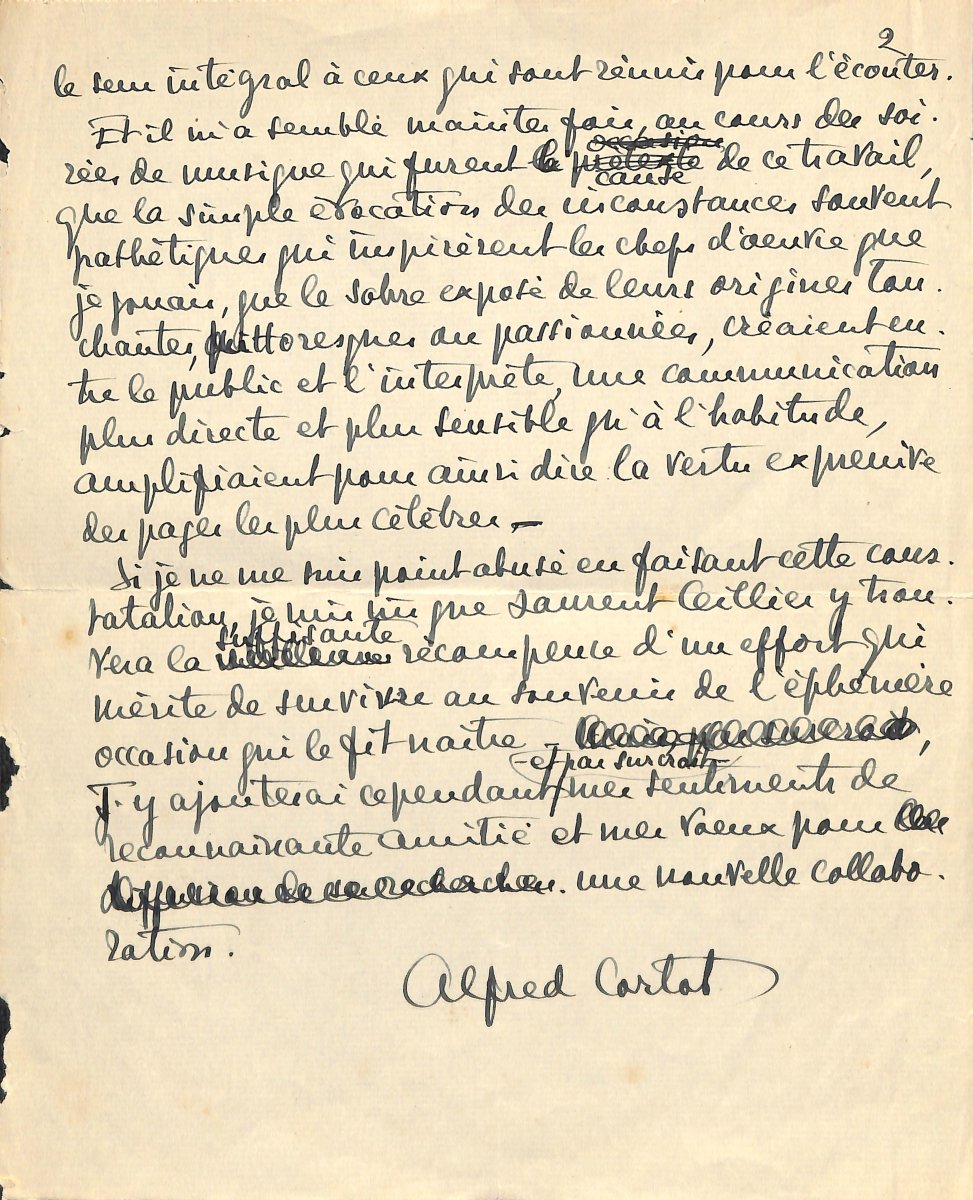 2
le sens intégral à ceux qui sont réunis pour l'écouter.
Et il m'a semblé maintes fois, au cours des soi-
occasion
rées de musique qui furent la prétexte de ce travail,
cause
que la simple évocation des circonstances souvent
pathétiques qui inspirèrent les chefs d'oeuvre que
je jouais, que le sobre exposé de leurs origines tou-
chantes, pittoresques ou passionnées, créaient en-
tre le public et l'interprète, une communication
plus directe et plus sensible qu'à l'habitude,
amplifiaient pour ainsi dire la vertu expressive
des pages les plus célèbres —
Si je ne me suis point abusé en faisant cette cons-
tatation, je suis sûr que Laurent Ceillier y trou-
suffisante
vera la meilleure récompense d'un effort qui
mérite de survivre au souvenir de l'éphémère
occasion qui le fit naître — Mais, par surcroît,
- et par surcroit -
J'y ajouterai cependant mes sentiments de
reconnaissante amitié et mes voeux pour
diffusion de ses recherches. une nouvelle collabo-
ration.
Alfred Cortot